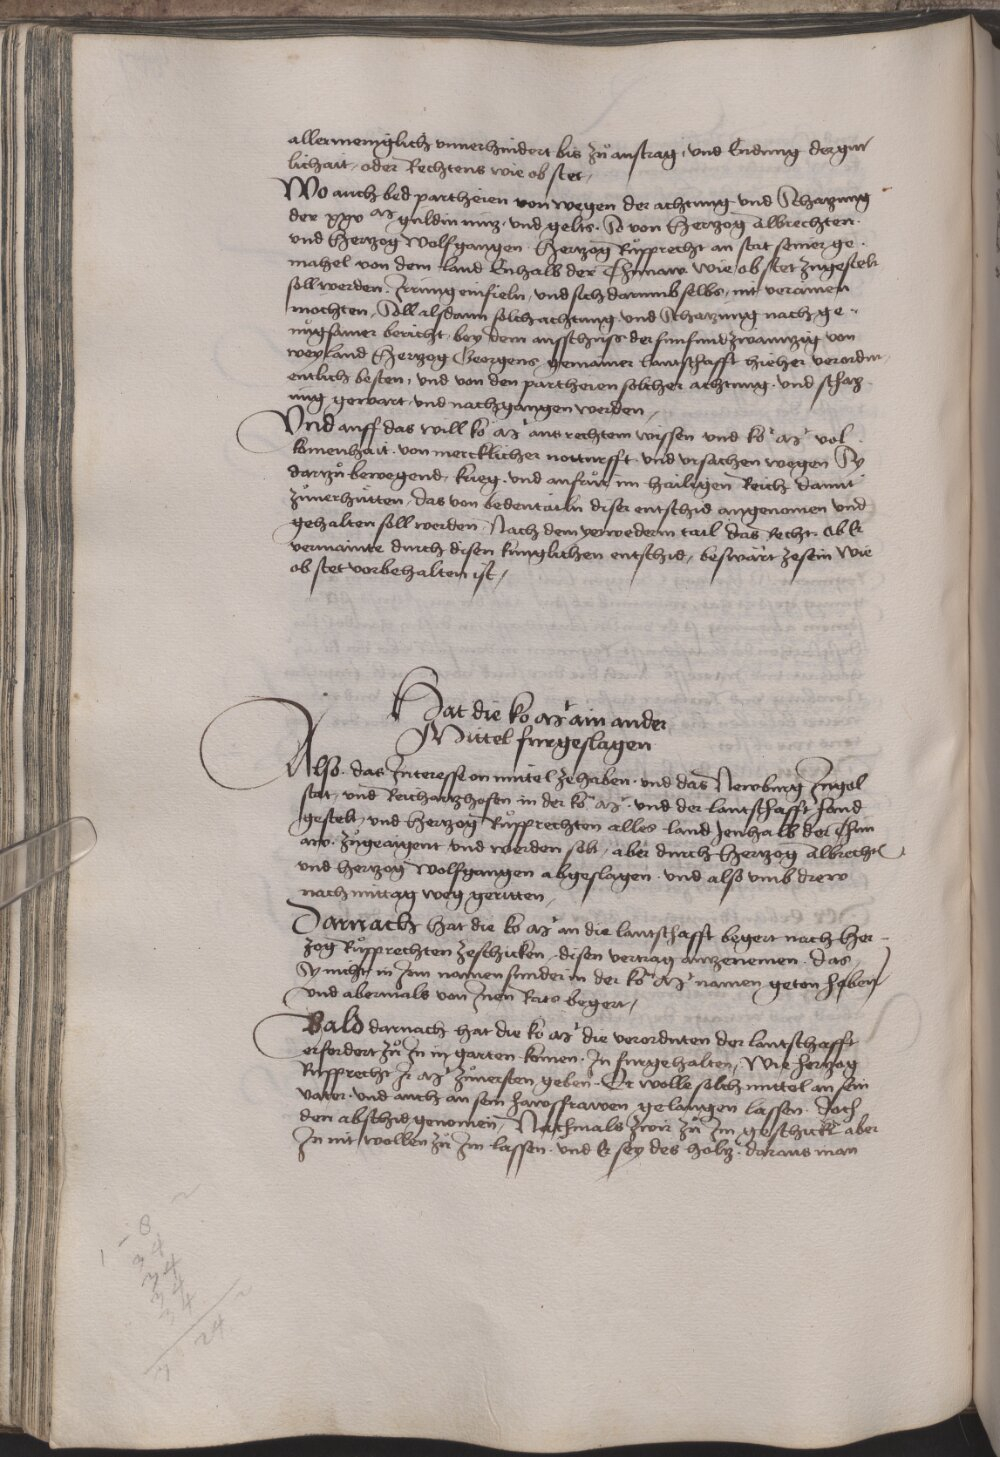 allermeniglich unverhindert bis zu austrag, und Endung der gut
lichait, oder Rechtens wie ob stet,
Wo auch bed partheien von wegen der achtung und Schatzung
der xxv m guldin nutz, und gelts. So von Hertzog Albrechten.
und Hertzog Wolfgangen. Hertzog Ruprecht an stat seiner ge.
mahel von dem land Enhalb der Thunaw. wie ob stet zugestelt
soll werden. Irrung einfieln, und sich darumb selbs, nit verainen
mochten, Soll alsdann solch achtung und Schatzung nach ge.
nugsamer bericht, bey dem ausschuss der funfundzwaintzig von
weyland Hertzog Georgens gemainer lantschafft hieher verordn
entlich besten, und von den partheien solcher achtung. und schatz
ung gewart, und nachgangen werden,
Und auff das will ko. Mt. aus rechtem wissen und ko. Mt. vol.
komenhait. von mercklicher notturfft. und ursachen wegen Sy
dartzu bewegend, krieg. und aufrur im hailigen Reich damit
zuverhutten, das von bedentailn diser entschid angenomen und
gehalten soll werden, Nach dem yerwederm tail das Recht. ob Er
vermainte durch disen kunglichen entschid, beswart zesein wie
ob stet vorbehalten ist,
Hat die ko Mt ain ander
Mittel furgeslagen
Also. das Interesse on mittel ze haben. und das Newburg Ingol
stat, und Reichartzhofen in der ko. Mt. und der lantschafft hand
gestelt, und Hertzog Rupprechten alles land Jenhalb der Thun
aw. zugeaigent und werden solt, aber durch Hertzog Albrecht
und hertzog Wolfgangen abgeslagen. und also umb drew
nach mittag weg geritten,
Darnach hat die ko Mt an die lantschafft begert nach Her.
zog Rupprechten zeschicken, disen vertrag antzenemen. das,
Sy nicht in Irm namen sunder in der ko. Mt. namen geton haben
und abermals von Inen Rats begert,
Bald darnach hat die ko Mt die verordnten der lantschafft
erfordert zu In in garten komen. In furgehalten, Wie hertzog
Rupprecht Ir Mt. zuversten geben. Er wolle solch mittel an sein
vater. und auch an sein hawsfrawen gelangen lassen. Doch
den abschid genomen, Nachmals zwir zu Im geschickt aber
In nit wollen zu Im lassen. und Er sey des holtz. daraus man
8
34
34
34
34
24